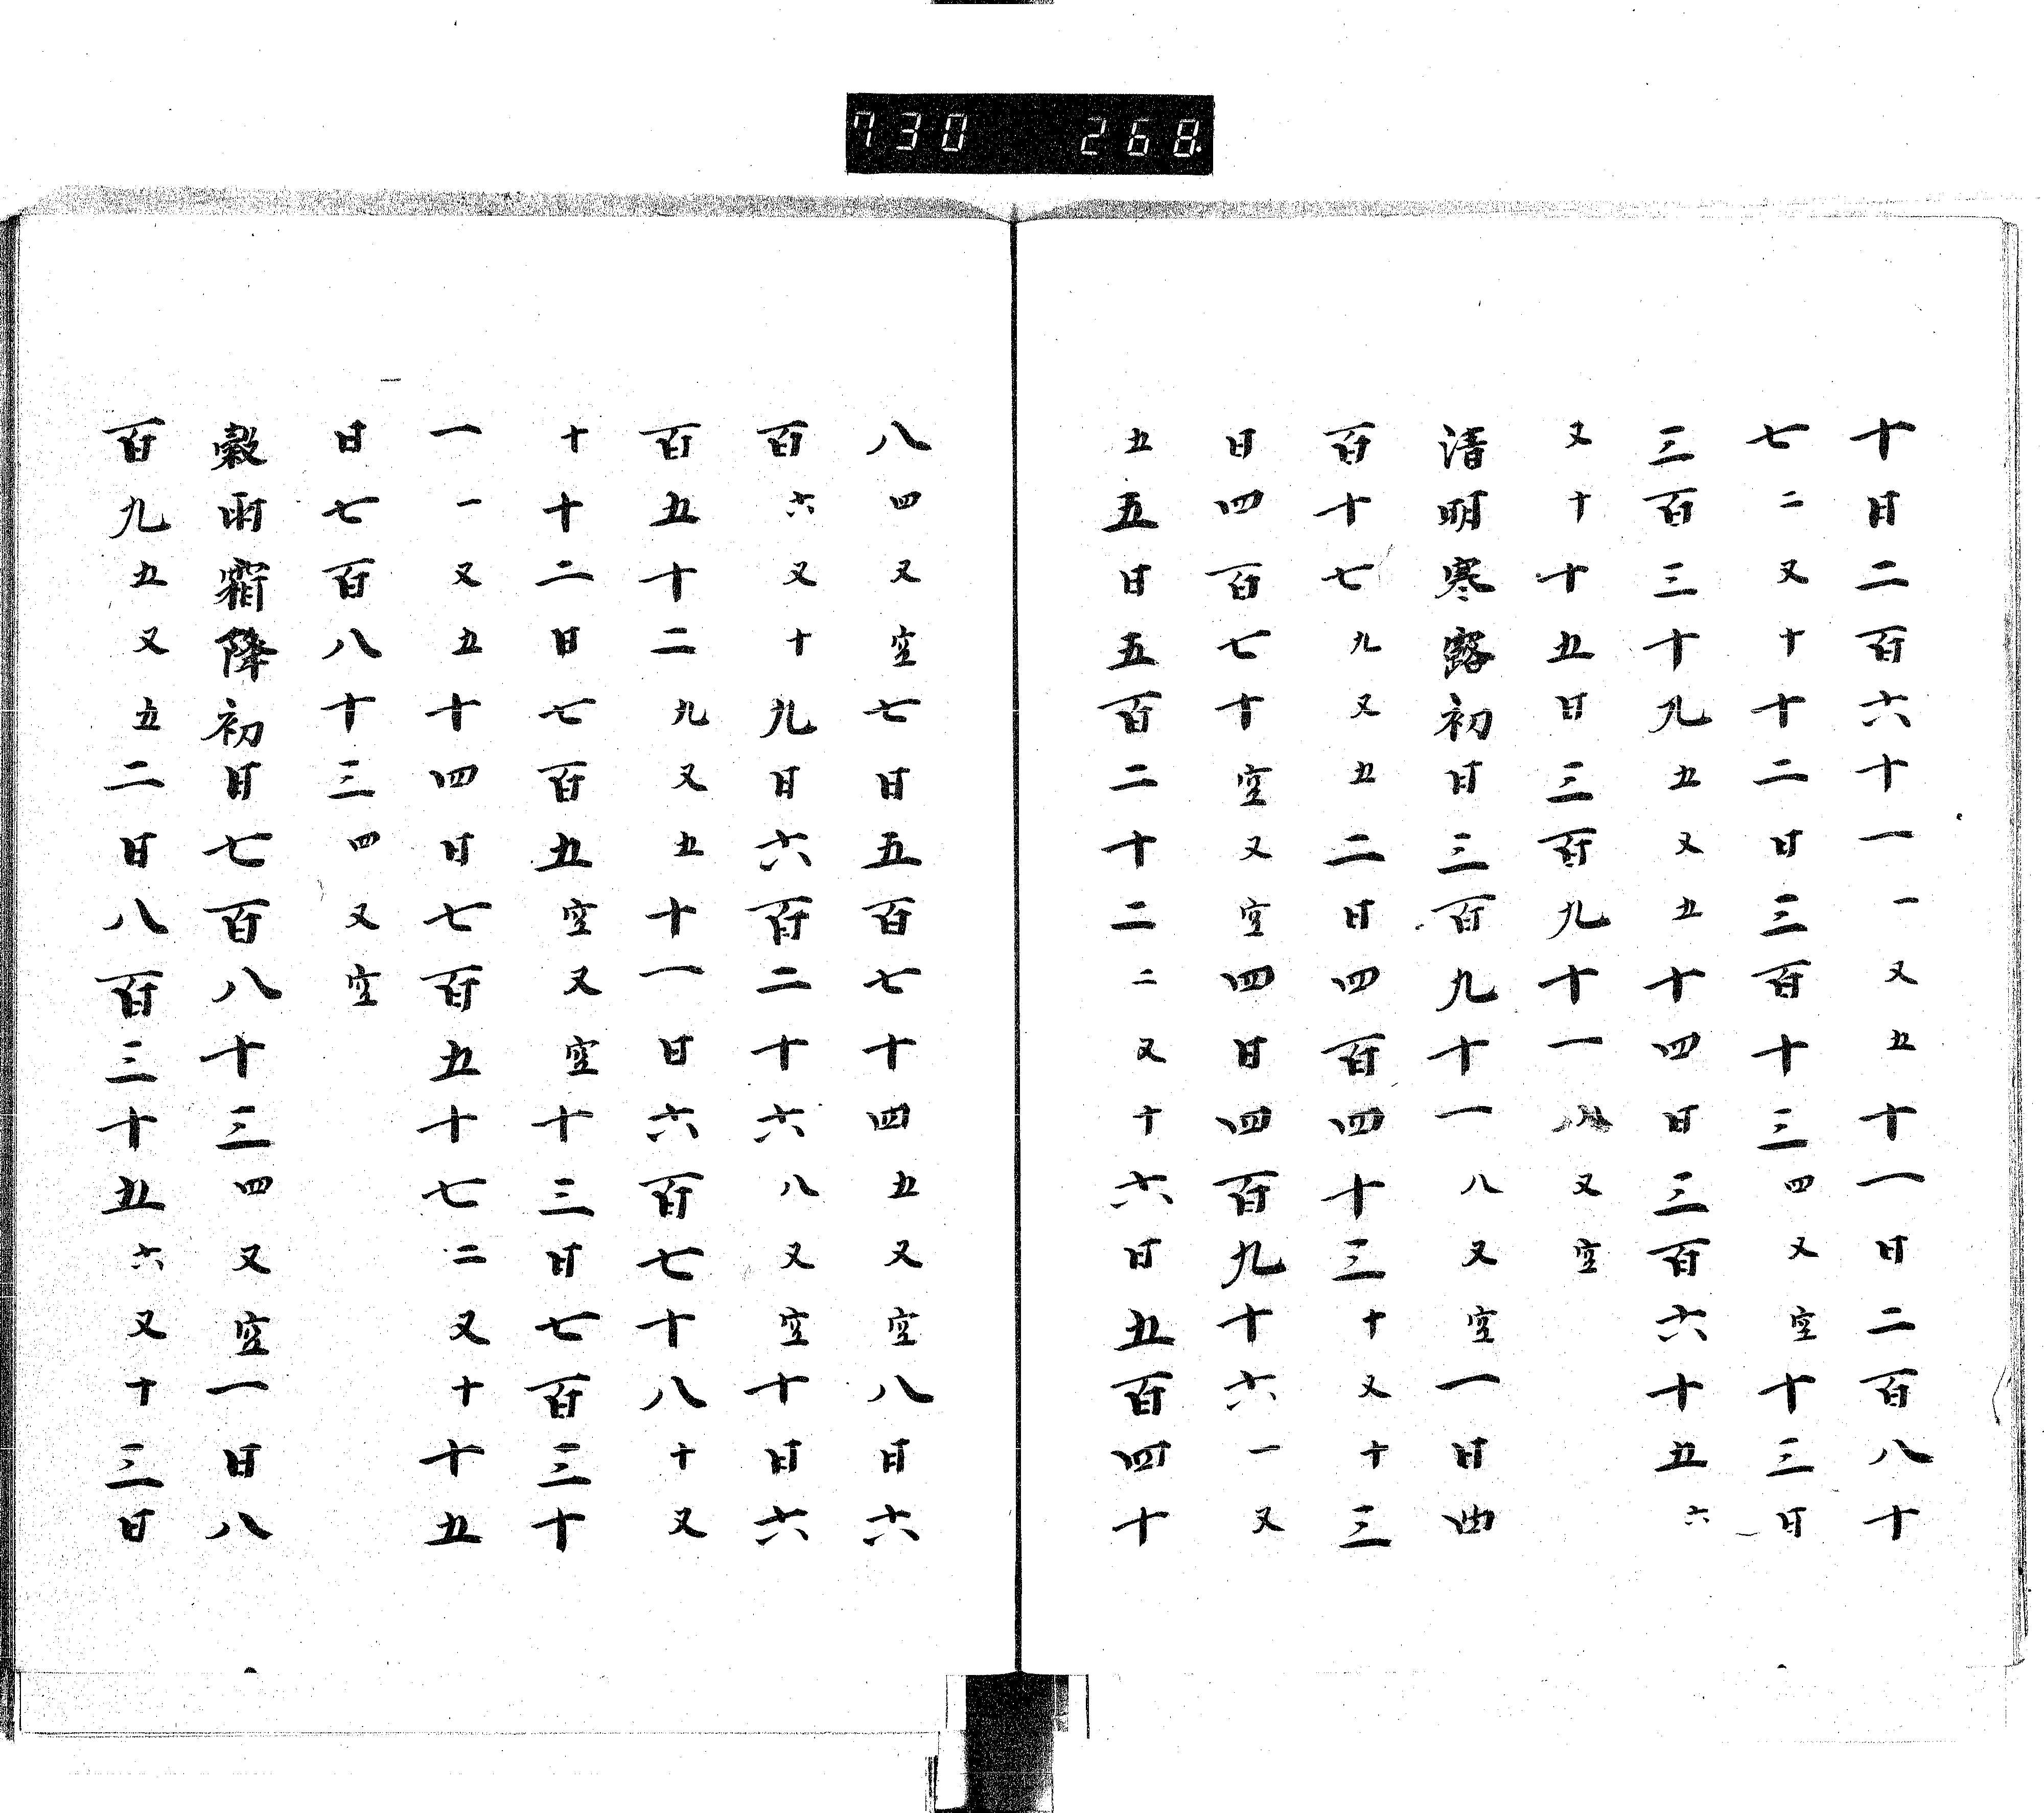 730 268
十日二百六十一一又五十一日二百八十
七二又十十二日三百十三四又空十三日
三百三十九五又五十四日三百六十五六
又十十五日三百九十一八又空
清明寒露初日三百九十一八又空一日四
百十七九又五二日四百四十三十又十三
日四百七十空又空四日四百九十六一又
五五日五百二十二二又十六日五百四十
八四又空七日五百七十四五又空八日六
百六又十九日六百二十六八又空十日六
百五十二九又五十一日六百七十八十又
十十二日七百五空又空十三日七百三十
一一又五十四日七百五十七二又十十五
日七百八十三四又空
穀雨霜降初日七百八十三四又空一日八
百九五又五二日八百三十五六又十三日